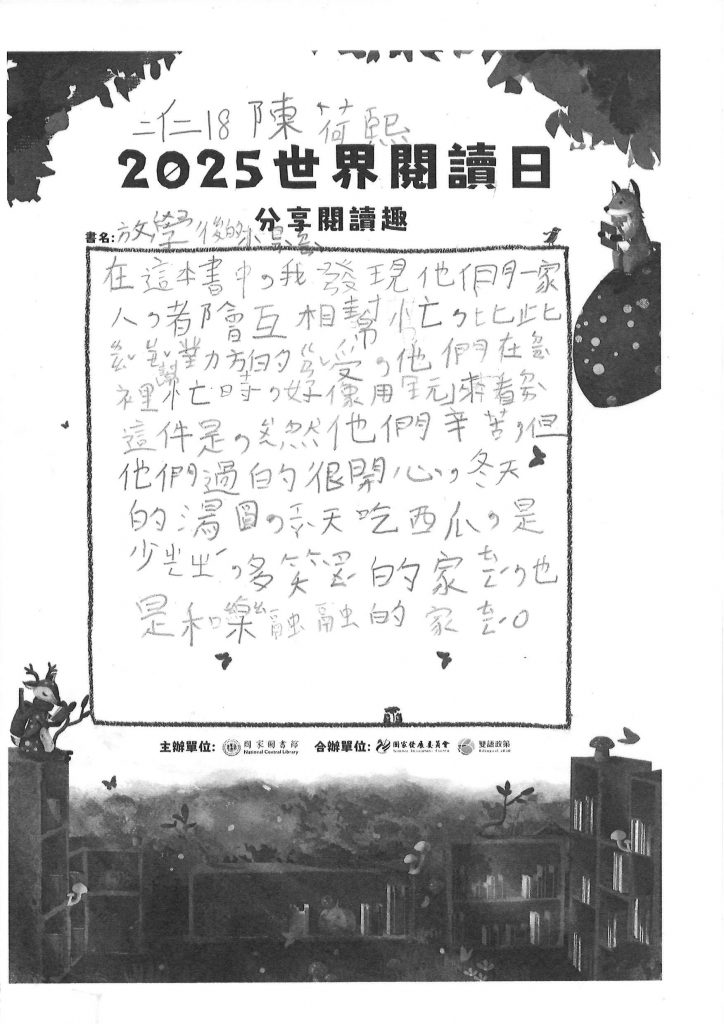 二仁18 陳荷熙
2025世界閱讀日
分享閱讀趣
書名:放學後的小
在這本書中,我發現他們一家
人,都會互相幫忙,比此
對方的受,他們在
裡幫忙時,好像用玩來看
這件是,然他們辛苦,但
他們過的很開心,冬天
的湯圓,天吃西瓜,是
少,多笑的家,也
是和樂融融的家。
主辦單位: 國家圖書館 National Central Library 合辦單位: 國家發展委員會 National Development Council 雙語政策 Bilingual 2030